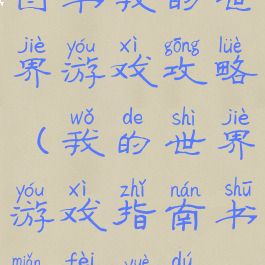 我的世
jiè yóu xì gōng lüè
界游戏攻略
wǒ de shì jiè
（我的世界
yóu xì zhǐ nán shū
游戏指南书
miǎn fèi yuè dú